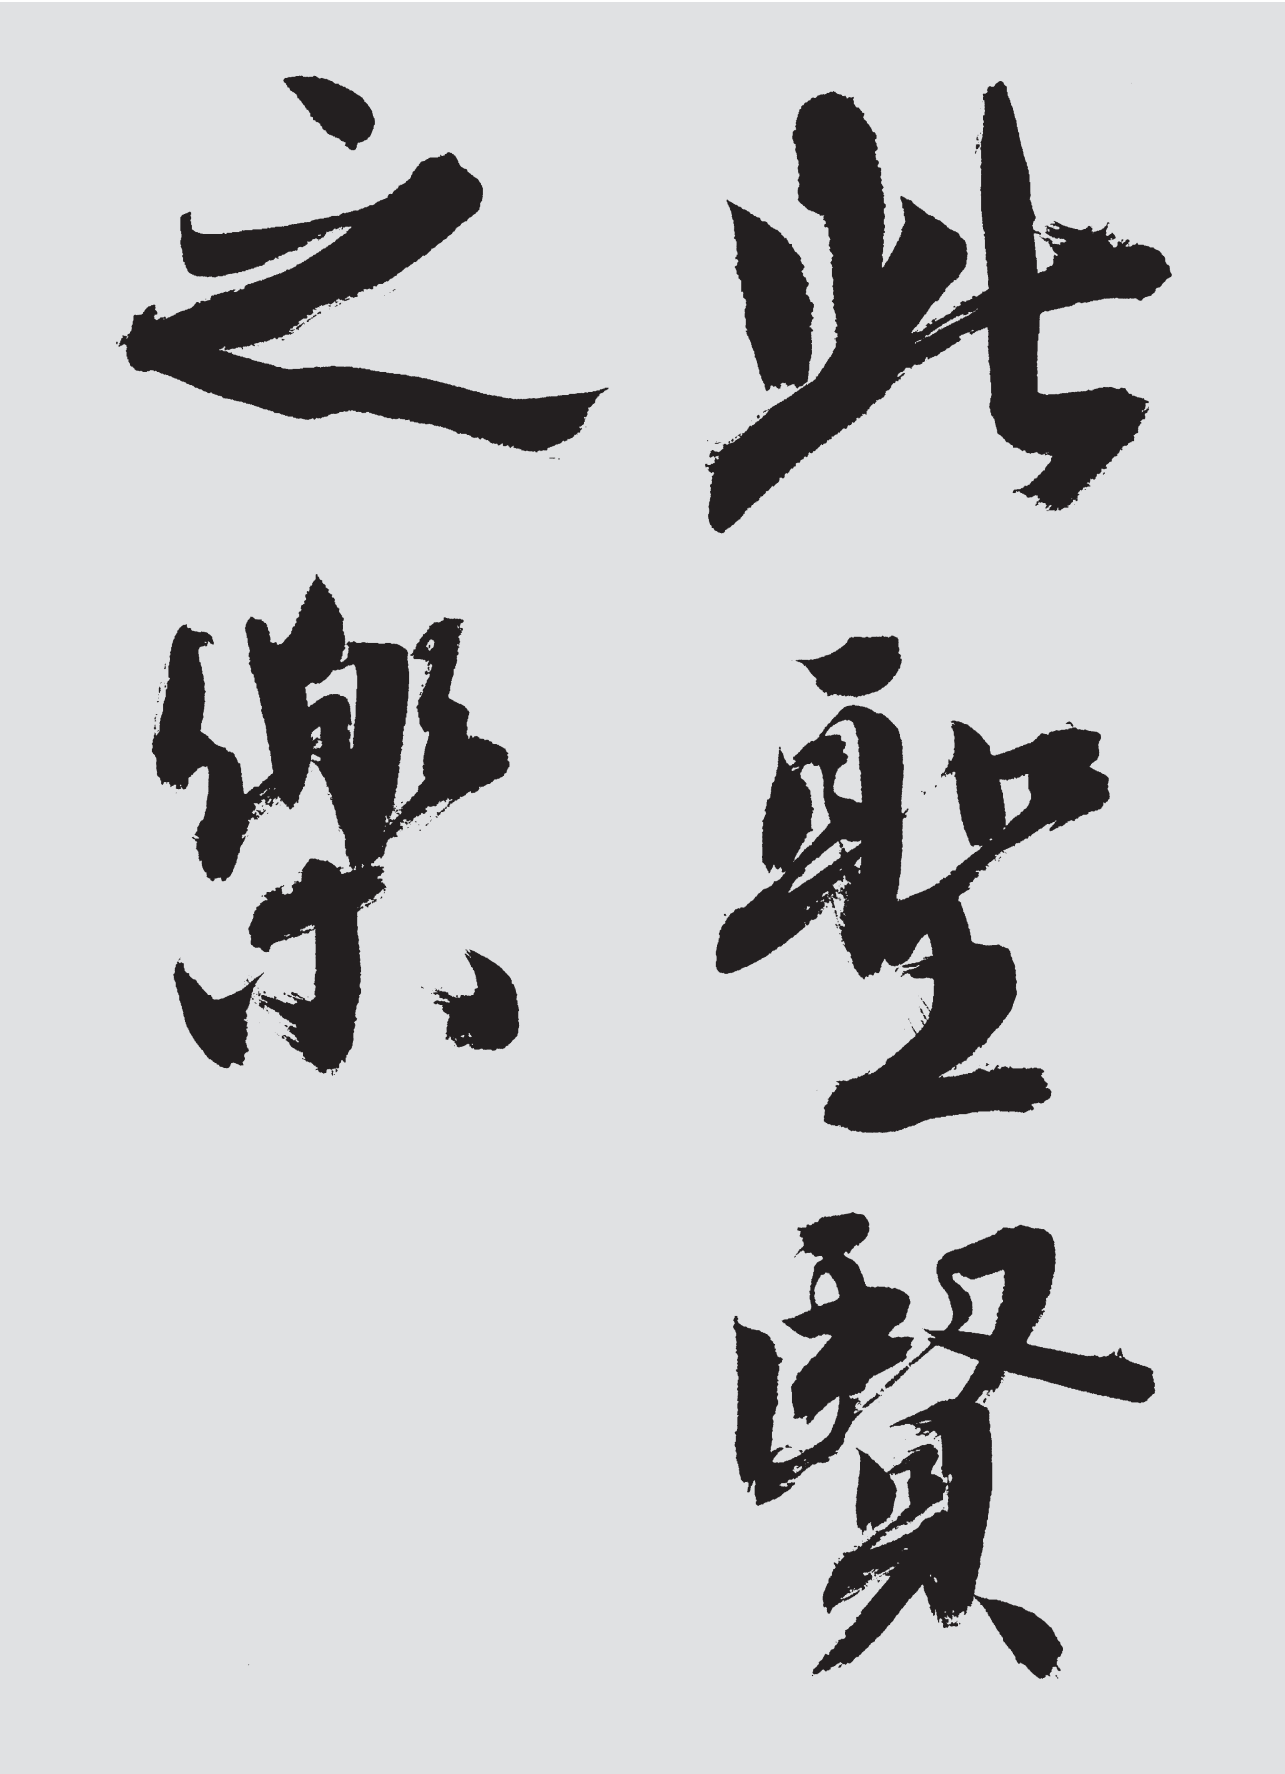 此聖賢
之樂